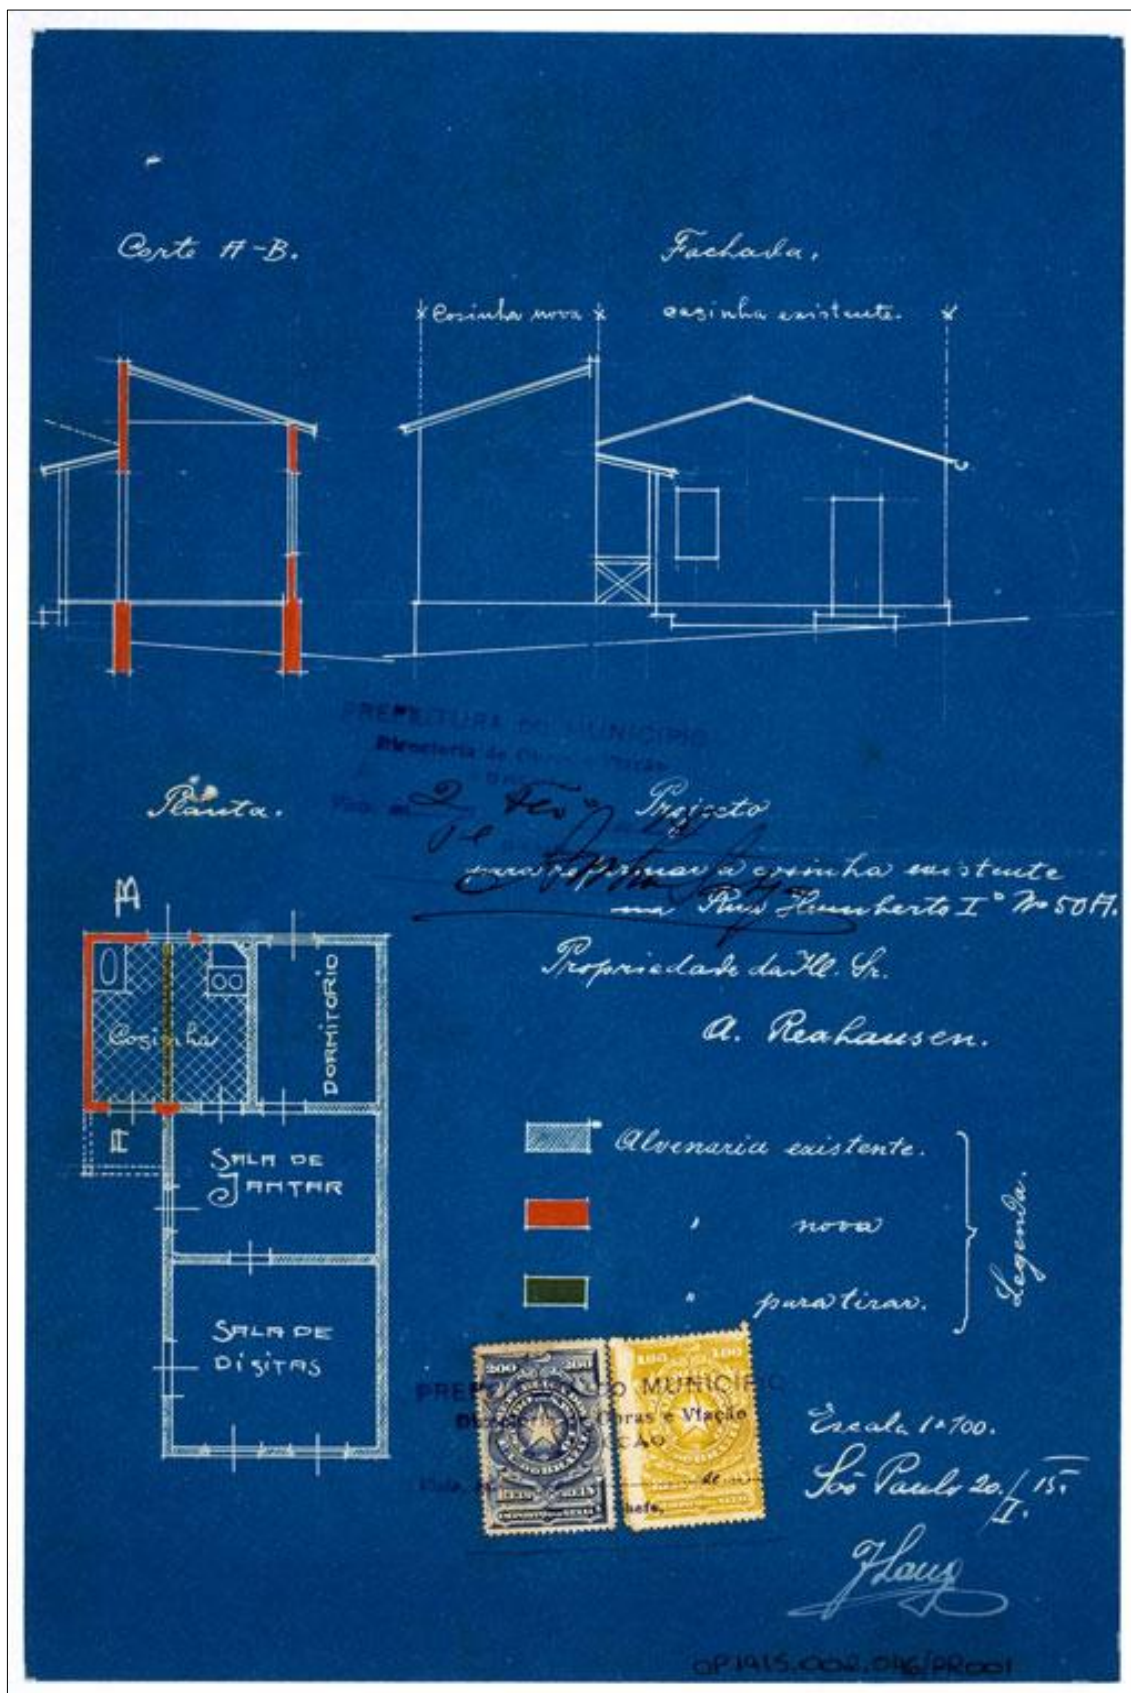 Corte A-B.
Fachada.
Cosinha nova
cazinha existente.
PREFEITURA DO MUNICIPIO
Directoria de Obras e Viação
Planta.
Projecto
para reformar a cosinha existente
na Rua Humberto Iº Nº 50A.
Propriedade da Ill. Sr.
A. Reahausen.
B
Cozinha
DORMITORIO
A
SALA DE
JANTAR
SALA DE
VISITAS
Alvenaria existente.
" nova
" para tirar.
Legenda.
200 200
100 100
REIS REIS
PREFEITURA DO MUNICIPIO
Directoria de Obras e Viação
Escala 1:100.
São Paulo 20./I. 15.
JLang
OP1915.002.046/PR001